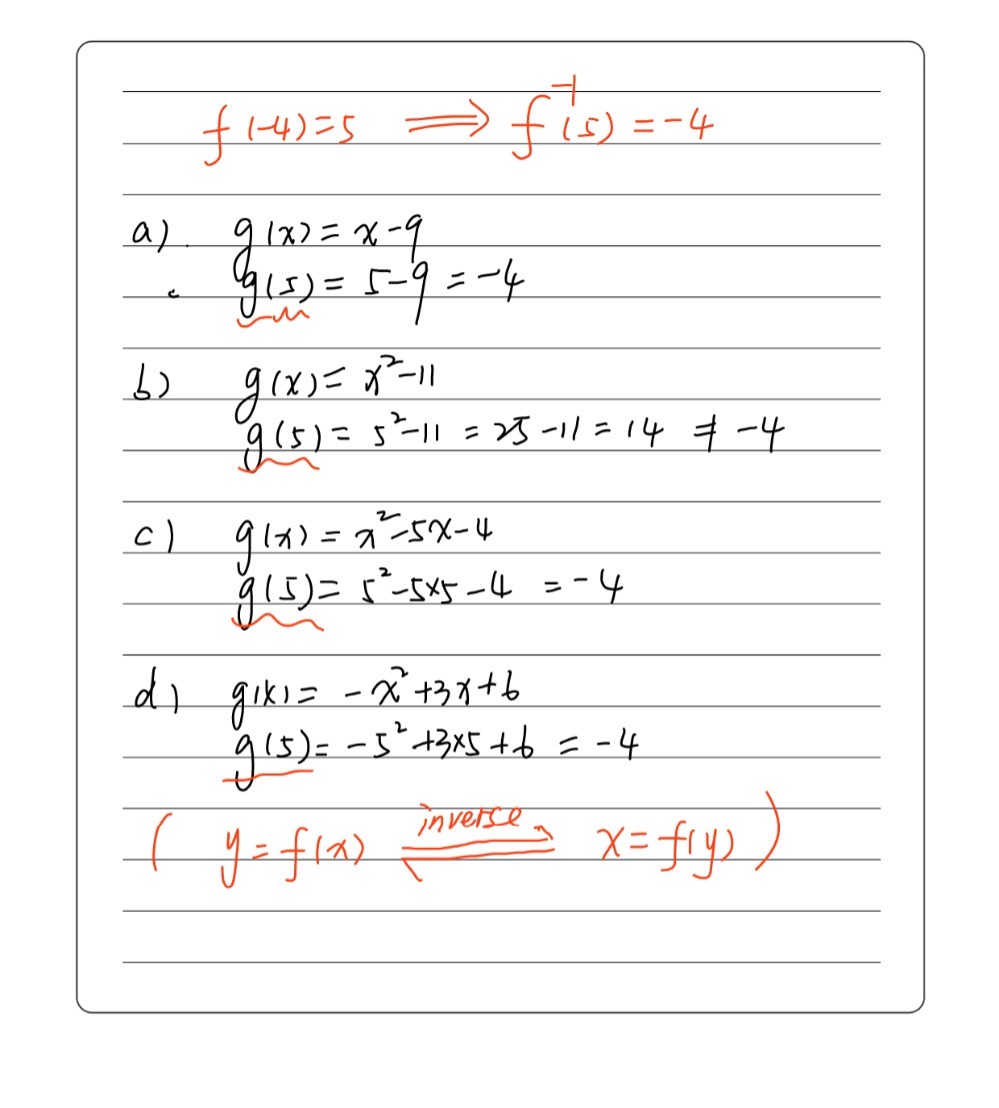 f(-4)=5 ⟹ f⁻¹(5)=-4
a). g(x)=x-9
g(5)=5-9=-4
b) g(x)=x²-11
g(5)=5²-11=25-11=14≠-4
c) g(x)=x²-5x-4
g(5)=5²-5×5-4=-4
d) g(x)=-x²+3x+6
g(5)=-5²+3×5+6=-4
(y=f(x) inverse ⇌ x=f(y))